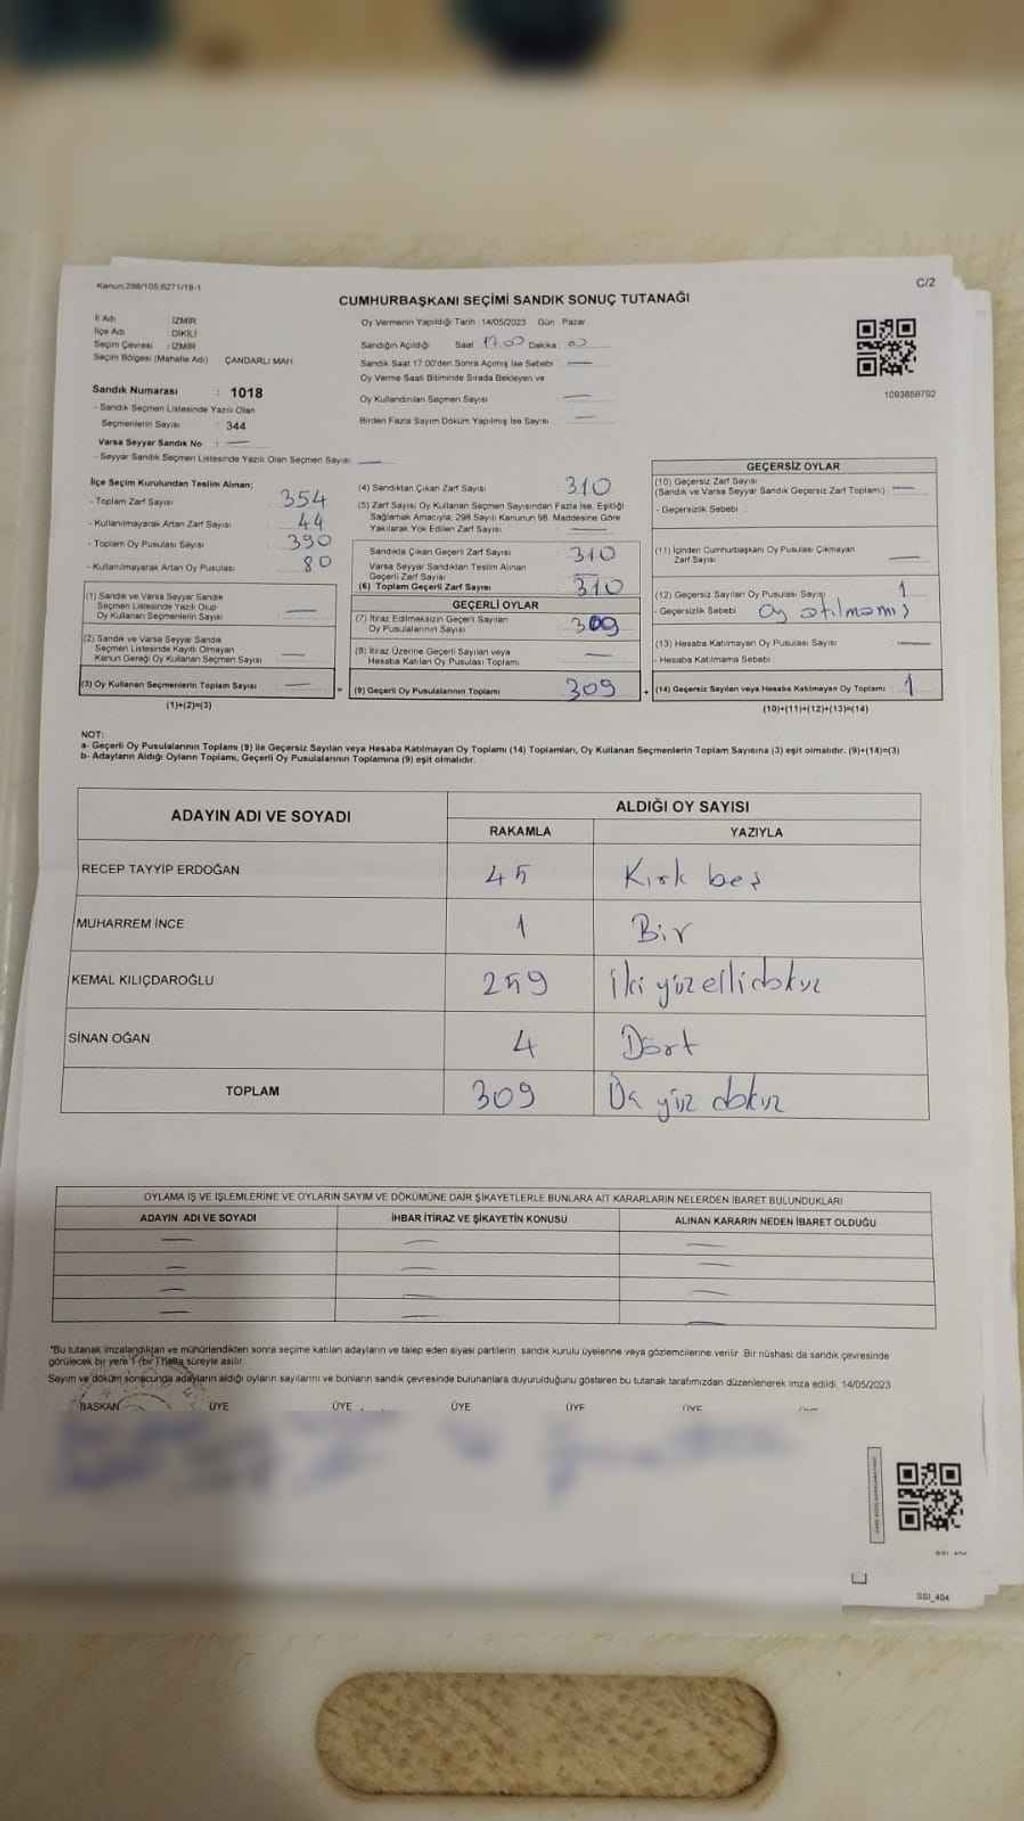 Kanun:298/105,6271/19-1
C/2
CUMHURBAŞKANI SEÇİMİ SANDIK SONUÇ TUTANAĞI
İl Adı : İZMİR
İlçe Adı : DİKİLİ
Seçim Çevresi : İZMİR
Seçim Bölgesi (Mahalle Adı) ÇANDARLI MAH
Sandık Numarası : 1018
- Sandık Seçmen Listesinde Yazılı Olan
Seçmenlerin Sayısı 344
Varsa Seyyar Sandık No : —
- Seyyar Sandık Seçmen Listesinde Yazılı Olan Seçmen Sayısı —
Oy Vermenin Yapıldığı Tarih :14/05/2023 Gün : Pazar
Sandığın Açıldığı Saat 17.00 Dakika 00
Sandık Saat 17.00'den Sonra Açılmış İse Sebebi —
Oy Verme Saati Bitiminde Sırada Bekleyen ve
Oy Kullandırılan Seçmen Sayısı —
Birden Fazla Sayım Döküm Yapılmış İse Sayısı —
1093658792
İlçe Seçim Kurulundan Teslim Alınan;
- Toplam Zarf Sayısı 354
- Kullanılmayarak Artan Zarf Sayısı 44
- Toplam Oy Pusulası Sayısı 390
- Kullanılmayarak Artan Oy Pusulası 80
(1) Sandık ve Varsa Seyyar Sandık
Seçmen Listesinde Yazılı Olup
Oy Kullanan Seçmenlerin Sayısı —
(2) Sandık ve Varsa Seyyar Sandık
Seçmen Listesinde Kayıtlı Olmayan
Kanun Gereği Oy Kullanan Seçmen Sayısı —
(3) Oy Kullanan Seçmenlerin Toplam Sayısı —
(1)+(2)=(3)
(4) Sandıktan Çıkan Zarf Sayısı 310
(5) Zarf Sayısı Oy Kullanan Seçmen Sayısından Fazla İse, Eşitliği
Sağlamak Amacıyla, 298 Sayılı Kanunun 98. Maddesine Göre
Yakılarak Yok Edilen Zarf Sayısı —
Sandıkta Çıkan Geçerli Zarf Sayısı 310
Varsa Seyyar Sandıktan Teslim Alınan
Geçerli Zarf Sayısı —
(6) Toplam Geçerli Zarf Sayısı 310
GEÇERLİ OYLAR
(7) İtiraz Edilmeksizin Geçerli Sayılan
Oy Pusulalarının Sayısı 309
(8) İtiraz Üzerine Geçerli Sayılan veya
Hesaba Katılan Oy Pusulası Toplamı —
= (9) Geçerli Oy Pusulalarının Toplamı 309
GEÇERSİZ OYLAR
(10) Geçersiz Zarf Sayısı
(Sandık ve Varsa Seyyar Sandık Geçersiz Zarf Toplamı) —
- Geçersizlik Sebebi
(11) İçinden Cumhurbaşkanı Oy Pusulası Çıkmayan
Zarf Sayısı —
(12) Geçersiz Sayılan Oy Pusulası Sayısı 1
- Geçersizlik Sebebi Oy atılmamış
(13) Hesaba Katılmayan Oy Pusulası Sayısı —
- Hesaba Katılmama Sebebi
+ (14) Geçersiz Sayılan veya Hesaba Katılmayan Oy Toplamı 1
(10)+(11)+(12)+(13)=(14)
NOT:
a- Geçerli Oy Pusulalarının Toplamı (9) ile Geçersiz Sayılan veya Hesaba Katılmayan Oy Toplamı (14) Toplamları, Oy Kullanan Seçmenlerin Toplam Sayısına (3) eşit olmalıdır. (9)+(14)=(3)
b- Adayların Aldığı Oyların Toplamı, Geçerli Oy Pusulalarının Toplamına (9) eşit olmalıdır.
ADAYIN ADI VE SOYADI
ALDIĞI OY SAYISI
RAKAMLA YAZIYLA
RECEP TAYYİP ERDOĞAN 45 Kırk beş
MUHARREM İNCE 1 Bir
KEMAL KILIÇDAROĞLU 259 İki yüz elli dokuz
SİNAN OĞAN 4 Dört
TOPLAM 309 Üç yüz dokuz
OYLAMA İŞ VE İŞLEMLERİNE VE OYLARIN SAYIM VE DÖKÜMÜNE DAİR ŞİKAYETLERLE BUNLARA AİT KARARLARIN NELERDEN İBARET BULUNDUKLARI
ADAYIN ADI VE SOYADI İHBAR İTİRAZ VE ŞİKAYETİN KONUSU ALINAN KARARIN NEDEN İBARET OLDUĞU
— — —
— — —
— — —
— — —
*Bu tutanak imzalandıktan ve mühürlendikten sonra seçime katılan adayların ve talep eden siyasi partilerin sandık kurulu üyelerine veya gözlemcilerine verilir. Bir nüshası da sandık çevresinde
görülecek bir yere 1 (bir) hafta süreyle asılır.
Sayım ve döküm sonucunda adayların aldığı oyların sayılarını ve bunların sandık çevresinde bulunanlara duyurulduğunu gösteren bu tutanak tarafımızdan düzenlenerek imza edildi. 14/05/2023
BAŞKAN ÜYE ÜYE ÜYE ÜYE ÜYE
SSI_404